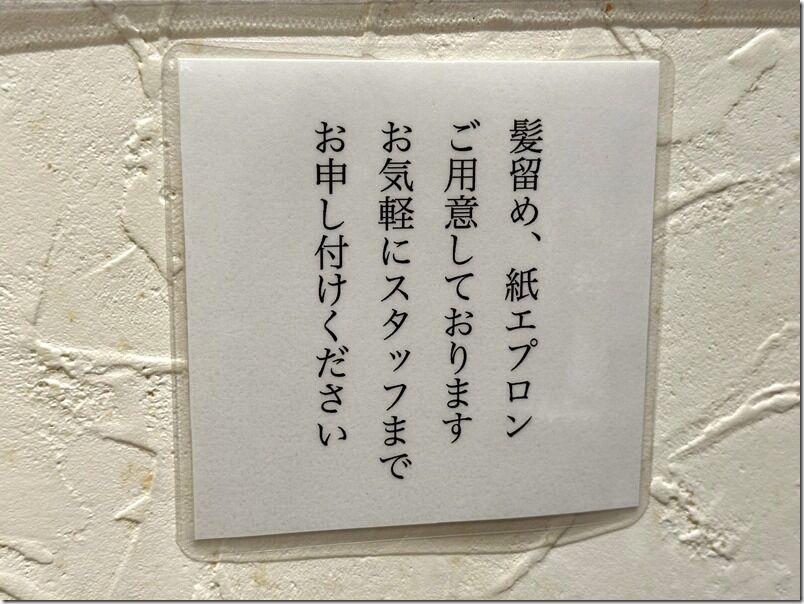 髪留め、紙エプロン
ご用意しております
お気軽にスタッフまで
お申し付けください